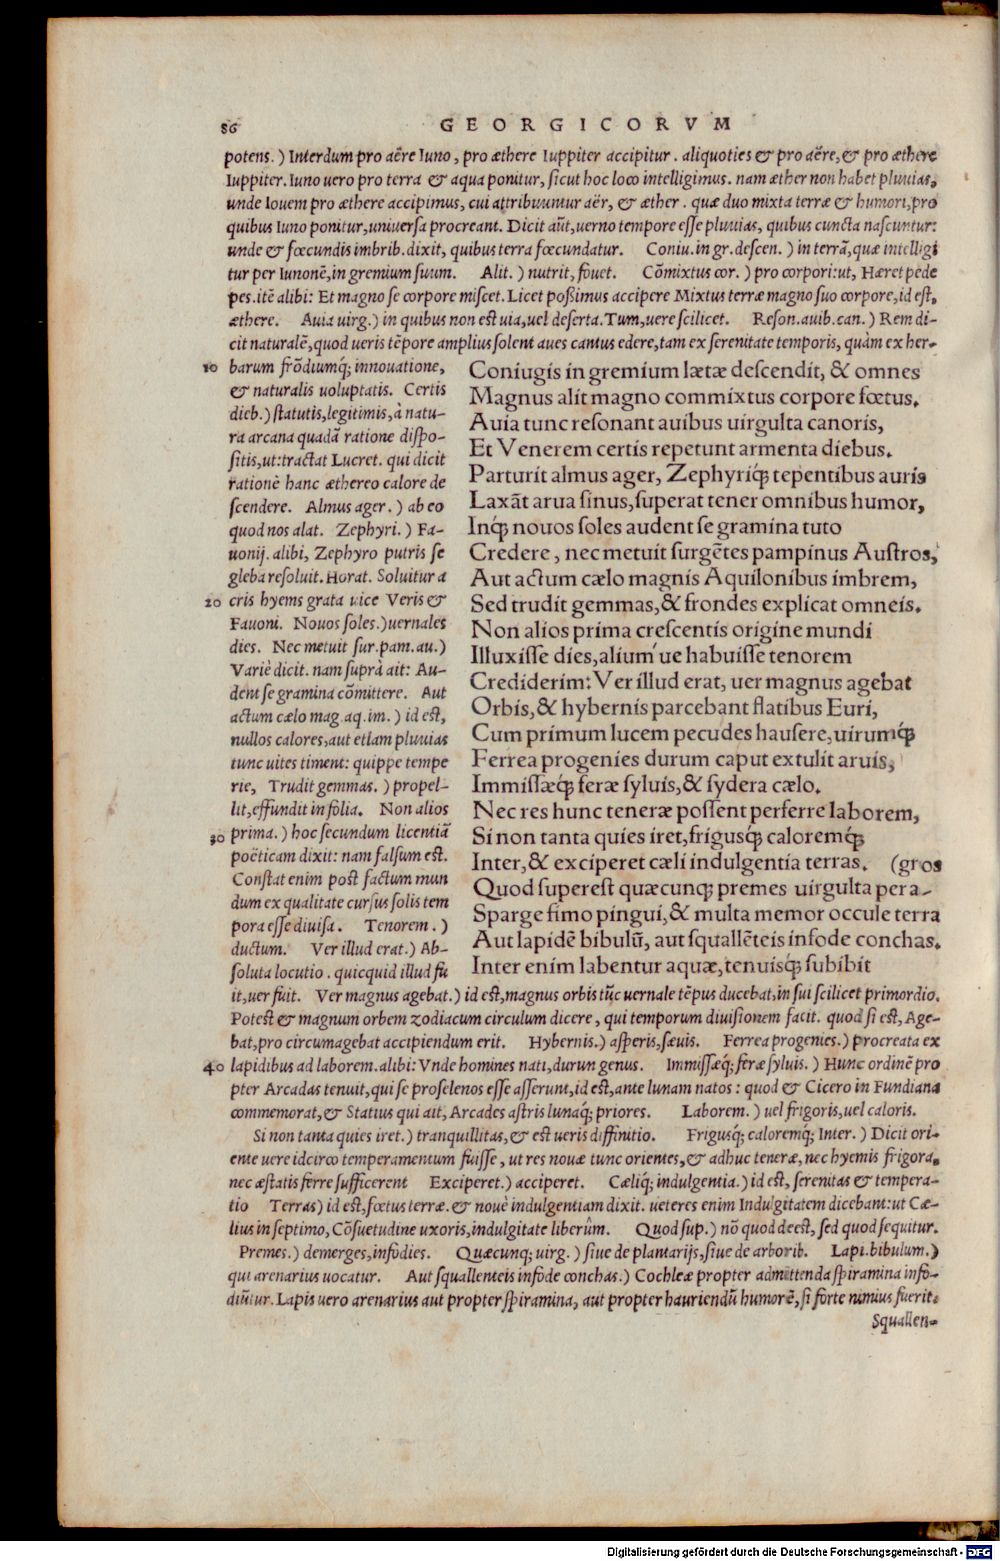 86
GEORGICORVM
potens.) Interdum pro aëre Iuno, pro æthere Iuppiter accipitur. aliquoties & pro aëre, & pro æthere
Iuppiter. Iuno uero pro terra & aqua ponitur, sicut hoc loco intelligimus. nam æther non habet pluuias,
unde Iouem pro æthere accipimus, cui attribuuntur aër, & æther. quæ duo mixta terræ & humori, pro
quibus Iuno ponitur, uniuersa procreant. Dicit aūt, uerno tempore esse pluuias, quibus cuncta nascuntur:
unde & fœcundis imbrib. dixit, quibus terra fœcundatur. Coniu. in gr. descen.) in terrā, quæ intelligi
tur per Iunonē, in gremium suum. Alit.) nutrit, fouet. Cōmixtus cor.) pro corpori: ut, Hæret pede
pes. itē alibi: Et magno se corpore miscet. Licet possimus accipere Mixtus terræ magno suo corpore, id est,
æthere. Auia uirg.) in quibus non est uia, uel deserta. Tum, uere scilicet. Reson. auib. can.) Rem di-
cit naturalē, quod ueris tēpore amplius solent aues cantus edere, tam ex serenitate temporis, quàm ex her-
10 barum frōdiumq́; innouatione,
& naturalis uoluptatis. Certis
dieb.) statutis, legitimis, à natu-
ra arcana quadā ratione dispo-
sitis, ut: tractat Lucret. qui dicit
rationē hanc æthereo calore de
scendere. Almus ager.) ab eo
quod nos alat. Zephyri.) Fa-
uonij. alibi, Zephyro putris se
gleba resoluit. Horat. Soluitur a
20 cris hyems grata uice Veris &
Fauoni. Nouos soles.) uernales
dies. Nec metuit sur. pam. au.)
Variè dicit. nam suprà ait: Au-
dent se gramina cōmittere. Aut
actum cælo mag. aq. im.) id est,
nullos calores, aut etiam pluuias
tunc uites timent: quippe tempe
rie, Trudit gemmas.) propel-
lit, effundit in folia. Non alios
30 prima.) hoc secundum licentiā
poëticam dixit: nam falsum est.
Constat enim post factum mun
dum ex qualitate cursus solis tem
pora esse diuisa. Tenorem.)
ductum. Ver illud erat.) Ab-
soluta locutio. quicquid illud fu
Coniugis in gremium lætæ descendit, & omnes
Magnus alit magno commixtus corpore fœtus.
Auia tunc resonant auibus uirgulta canoris,
Et Venerem certis repetunt armenta diebus.
Parturit almus ager, Zephyriq́; tepentibus auris
Laxāt arua sinus, superat tener omnibus humor,
Inq́; nouos soles audent se gramina tuto
Credere, nec metuit surgētes pampinus Austros,
Aut actum cælo magnis Aquilonibus imbrem,
Sed trudit gemmas, & frondes explicat omneis.
Non alios prima crescentis origine mundi
Illuxisse dies, alium'ue habuisse tenorem
Crediderim: Ver illud erat, uer magnus agebat
Orbis, & hybernis parcebant flatibus Euri,
Cum primum lucem pecudes hausere, uirumq́;
Ferrea progenies durum caput extulit aruis,
Immissæq́; feræ syluis, & sydera cælo.
Nec res hunc teneræ possent perferre laborem,
Si non tanta quies iret, frigusq́; caloremq́;
Inter, & exciperet cæli indulgentia terras. (gros
Quod superest quæcunq; premes uirgulta per a-
Sparge fimo pingui, & multa memor occule terra
Aut lapidē bibulū, aut squallēteis infode conchas.
Inter enim labentur aquæ, tenuisq́; subibit
it, uer fuit. Ver magnus agebat.) id est, magnus orbis tūc uernale tēpus ducebat, in sui scilicet primordio.
Potest & magnum orbem zodiacum circulum dicere, qui temporum diuisionem facit. quod si est, Age-
bat, pro circumagebat accipiendum erit. Hybernis.) asperis, sæuis. Ferrea progenies.) procreata ex
40 lapidibus ad laborem. alibi: Vnde homines nati, durun genus. Immissæq́; feræ syluis.) Hunc ordinē pro
pter Arcadas tenuit, qui se proselenos esse asserunt, id est, ante lunam natos: quod & Cicero in Fundiana
commemorat, & Statius qui ait, Arcades astris lunaq́; priores. Laborem.) uel frigoris, uel caloris.
Si non tanta quies iret.) tranquillitas, & est ueris diffinitio. Frigusq́; caloremq́; Inter.) Dicit ori-
ente uere idcirco temperamentum fuisse, ut res nouæ tunc orientes, & adhuc teneræ, nec hyemis frigora,
nec æstatis ferre sufficerent Exciperet.) acciperet. Cæliq; indulgentia.) id est, serenitas & tempera-
tio Terras) id est, fœtus terræ. & nouè indulgentiam dixit. ueteres enim Indulgitatem dicebant: ut Cæ-
lius in septimo, Cōsuetudine uxoris, indulgitate liberûm. Quod sup.) nō quod deest, sed quod sequitur.
Premes.) demerges, infodies. Quæcunq; uirg.) siue de plantarijs, siue de arborib. Lapi. bibulum.)
qui arenarius uocatur. Aut squallenteis infode conchas.) Cochleæ propter admittenda spiramina info-
diūtur. Lapis uero arenarius aut propter spiramina, aut propter hauriendū humorē, si forte nimius fuerit.
Squallen-
Digitalisierung gefördert durch die Deutsche Forschungsgemeinschaft - DFG